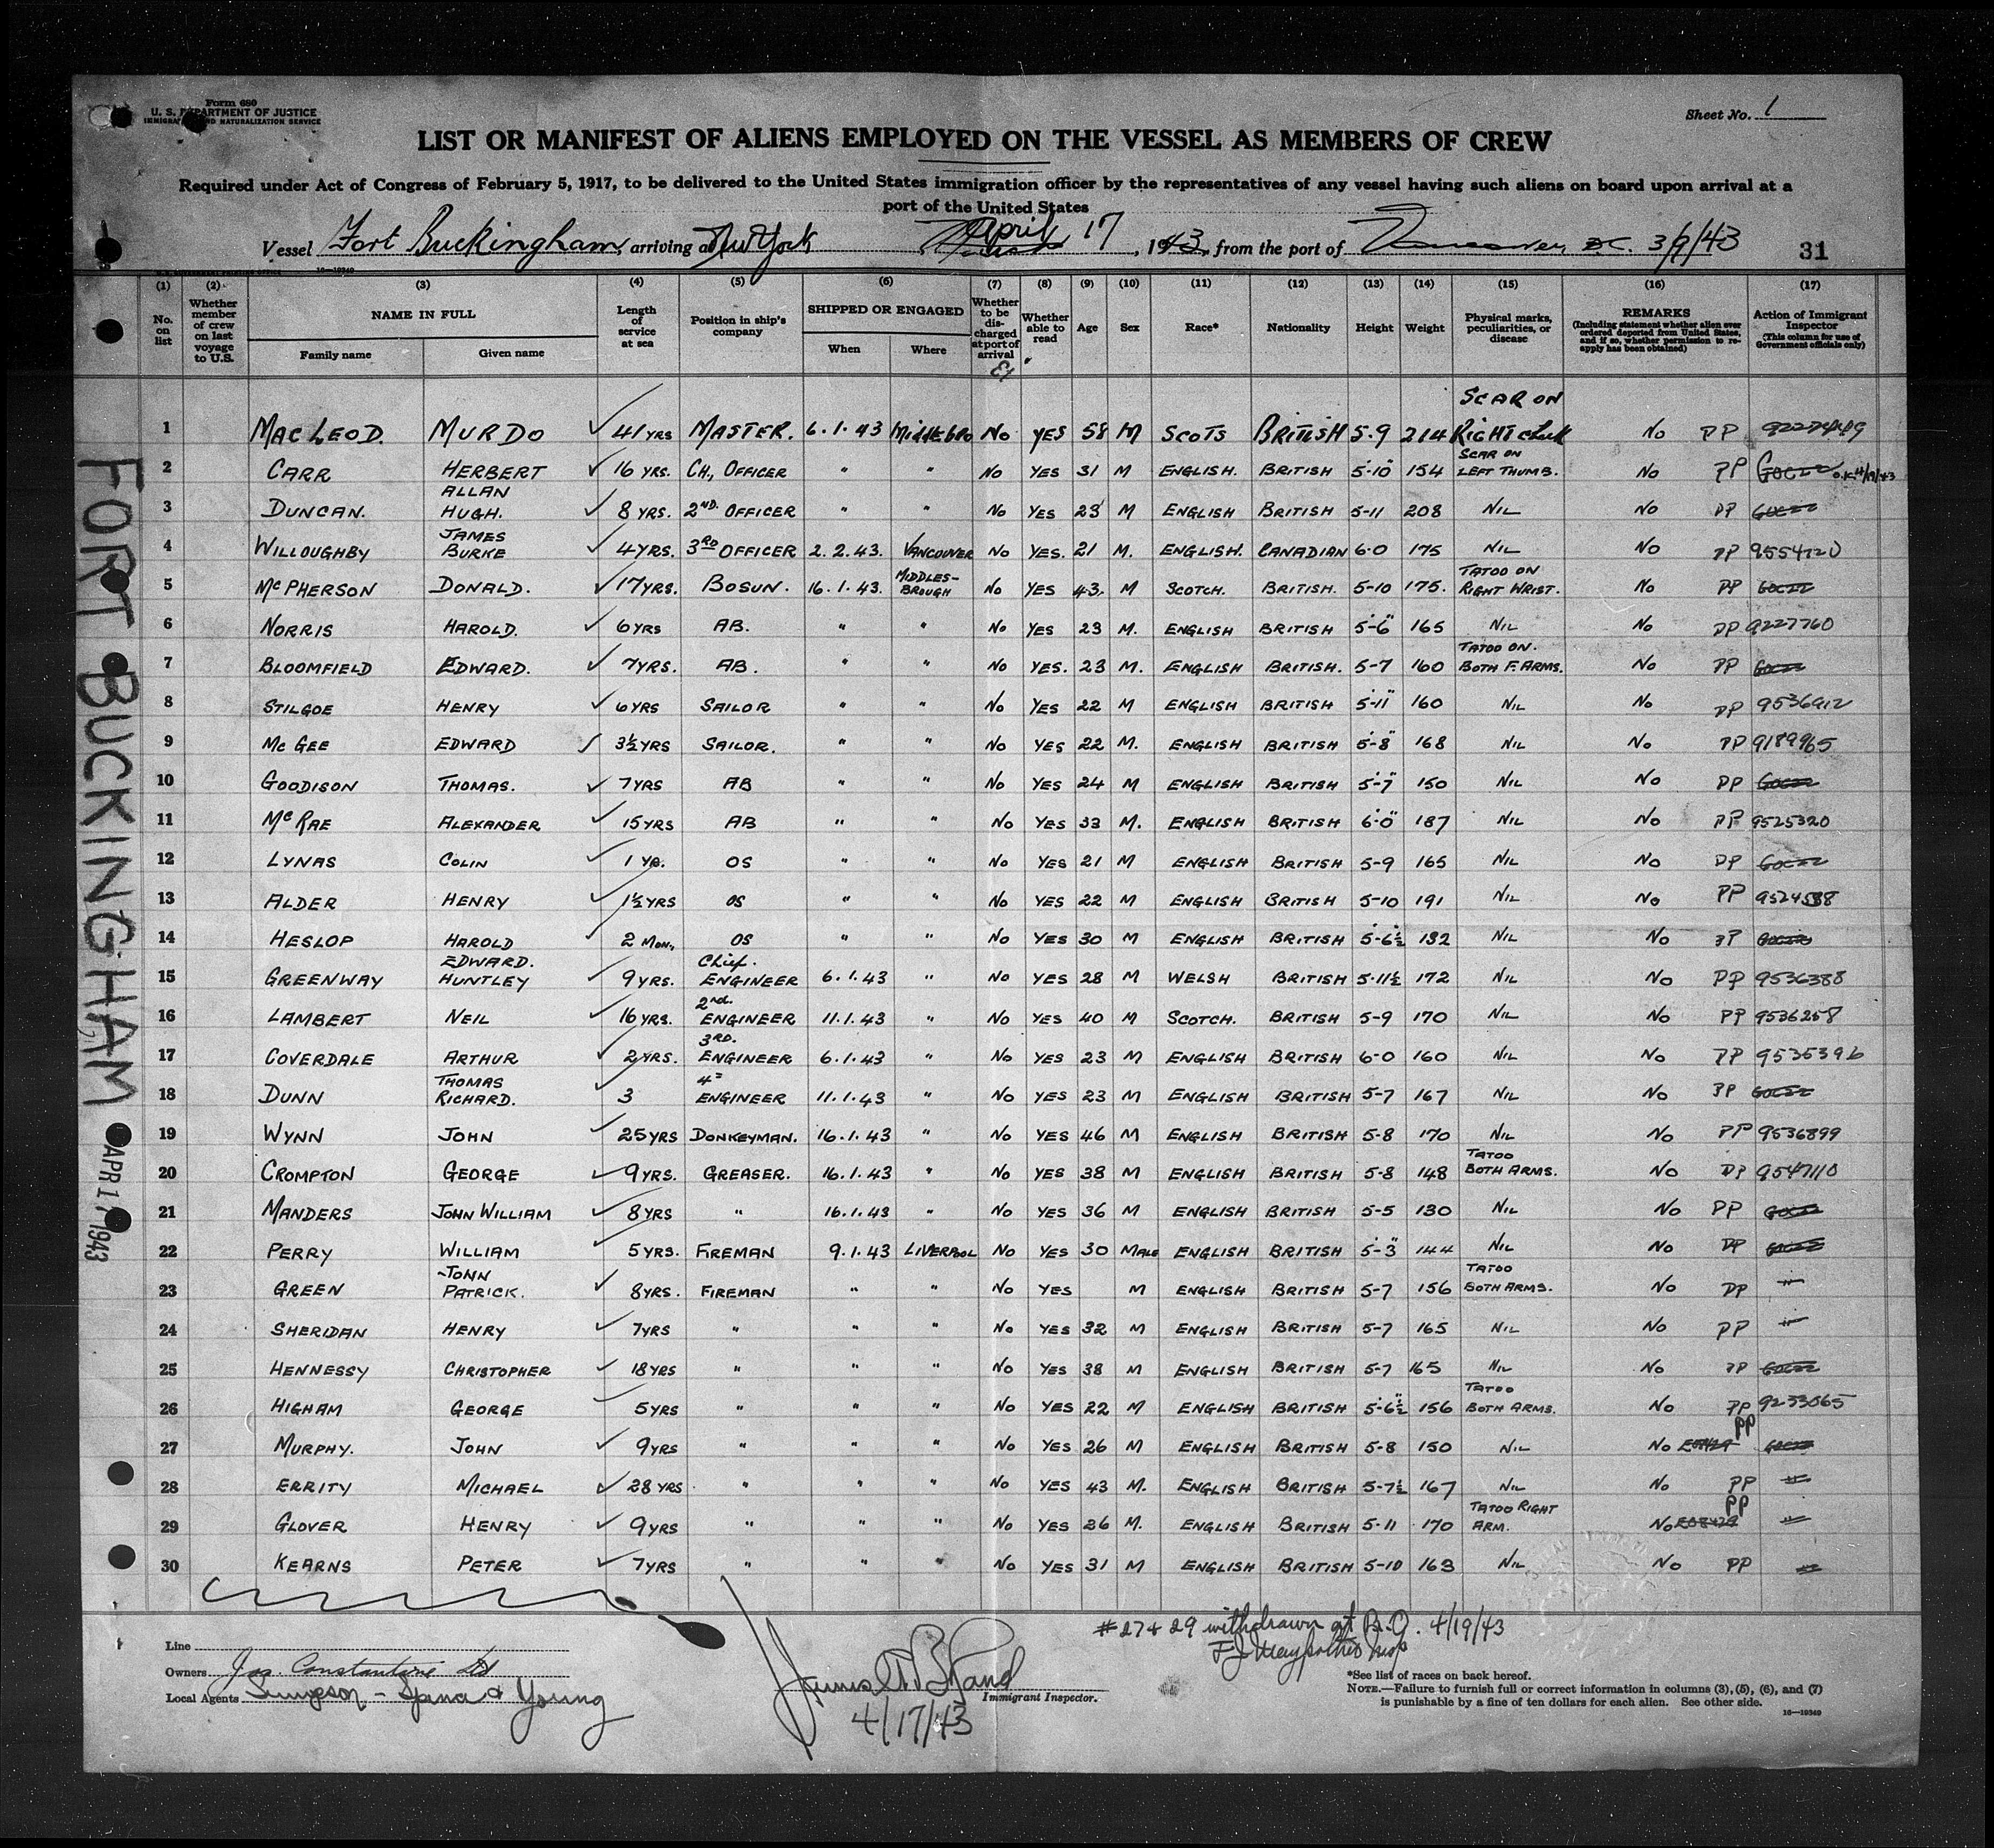 Form 680
U. S. DEPARTMENT OF JUSTICE
IMMIGRATION AND NATURALIZATION SERVICE
Sheet No. 1
LIST OR MANIFEST OF ALIENS EMPLOYED ON THE VESSEL AS MEMBERS OF CREW
Required under Act of Congress of February 5, 1917, to be delivered to the United States immigration officer by the representatives of any vessel having such aliens on board upon arrival at a
port of the United States
Vessel Fort Buckingham, arriving at New York April 17, 1943, from the port of Vancouver, B.C. 3/9/43 31
16—19349
(1) (2) (3) (4) (5) (6) (7) (8) (9) (10) (11) (12) (13) (14) (15) (16) (17)
No. on list
Whether member of crew on last voyage to U.S.
NAME IN FULL
Family name
Given name
Length of service at sea
Position in ship's company
SHIPPED OR ENGAGED
When
Where
Whether to be discharged at port of arrival
Whether able to read
Age
Sex
Race*
Nationality
Height
Weight
Physical marks, peculiarities, or disease
REMARKS
(Including statement whether alien ever ordered deported from United States, and if so, whether permission to reapply has been obtained)
Action of Immigrant Inspector
(This column for use of Government officials only)
1 MACLEOD. MURDO 41 YRS MASTER. 6.1.43 Middlebro No YES 58 M SCOTS BRITISH 5-9 214 SCAR ON RIGHT cheek No PP
2 CARR HERBERT 16 YRS. CH. OFFICER " " No YES 31 M ENGLISH. BRITISH 5-10 154 SCAR ON LEFT THUMB. No PP
3 DUNCAN. ALLAN HUGH. 8 YRS. 2ND. OFFICER " " No YES 23 M ENGLISH BRITISH 5-11 208 NIL No PP
4 WILLOUGHBY JAMES BURKE 4 YRS. 3RD OFFICER 2.2.43. VANCOUVER No YES. 21 M. ENGLISH. CANADIAN 6-0 175 NIL No PP 9554120
5 McPHERSON DONALD. 17 YRS. BOSUN. 16.1.43. MIDDLES-BROUGH No YES 43. M SCOTCH. BRITISH. 5-10 175. TATOO ON RIGHT WRIST. No PP
6 NORRIS HAROLD. 6 YRS AB. " " No YES 23 M. ENGLISH BRITISH 5-6 165 NIL No PP 9227760
7 BLOOMFIELD EDWARD. 7 YRS. AB. " " No YES. 23 M. ENGLISH BRITISH. 5-7 160 TATOO ON. BOTH F. ARMS. No PP
8 STILGOE HENRY 6 YRS SAILOR " " No YES 22 M ENGLISH BRITISH 5-11 160 NIL No PP 9536912
9 McGEE EDWARD 3½ YRS SAILOR. " " No YES 22 M. ENGLISH BRITISH 5-8 168 NIL No PP 9189965
10 GOODISON THOMAS. 7 YRS AB " " No YES 24 M ENGLISH BRITISH 5-7 150 NIL No PP
11 McRAE ALEXANDER 15 YRS AB " " No YES 33 M. ENGLISH BRITISH 6-0 187 NIL No PP 9525320
12 LYNAS COLIN 1 YR. OS " " No YES 21 M ENGLISH BRITISH 5-9 165 NIL No PP
13 ALDER HENRY 1½ YRS OS " " No YES 22 M ENGLISH BRITISH 5-10 191 NIL No PP 9524588
14 HESLOP HAROLD 2 MON. OS " " No YES 30 M ENGLISH BRITISH 5-6½ 132 NIL No PP
15 GREENWAY EDWARD. HUNTLEY 9 YRS. Chief. ENGINEER 6.1.43 " No YES 28 M WELSH BRITISH 5-11½ 172 NIL No PP 9536388
16 LAMBERT NEIL 16 YRS. 2nd. ENGINEER 11.1.43 " No YES 40 M SCOTCH. BRITISH 5-9 170 NIL No PP 9536258
17 COVERDALE ARTHUR 2 YRS. 3RD. ENGINEER 6.1.43 " No YES 23 M ENGLISH BRITISH 6-0 160 NIL No PP 9535396
18 DUNN THOMAS RICHARD. 3 4 ENGINEER 11.1.43 " No YES 23 M ENGLISH BRITISH 5-7 167 NIL No PP
19 WYNN JOHN 25 YRS DONKEYMAN. 16.1.43 " No YES 46 M ENGLISH BRITISH 5-8 170 NIL No PP 9536899
20 CROMPTON GEORGE 9 YRS. GREASER. 16.1.43 " No YES 38 M ENGLISH BRITISH 5-8 148 TATOO BOTH ARMS. No PP 9547110
21 MANDERS JOHN WILLIAM 8 YRS " 16.1.43 " No YES 36 M ENGLISH BRITISH 5-5 130 NIL No PP
22 PERRY WILLIAM 5 YRS. FIREMAN 9.1.43 LIVERPOOL No YES 30 MALE ENGLISH BRITISH 5-3 144 NIL No PP
23 GREEN JOHN PATRICK. 8 YRS. FIREMAN " " No YES M ENGLISH BRITISH 5-7 156 TATOO BOTH ARMS. No PP "
24 SHERIDAN HENRY 7 YRS " " " No YES 32 M ENGLISH BRITISH 5-7 165 NIL No PP "
25 HENNESSY CHRISTOPHER 18 YRS " " " No YES 38 M ENGLISH BRITISH 5-7 165 NIL No PP
26 HIGHAM GEORGE 5 YRS " " " No YES 22 M ENGLISH BRITISH 5-6½ 156 TATOO BOTH ARMS. No PP 9233065
27 MURPHY. JOHN 9 YRS " " " No YES 26 M ENGLISH BRITISH 5-8 150 NIL No PP
28 ERRITY MICHAEL 28 YRS " " " No YES 43 M. ENGLISH BRITISH 5-7½ 167 NIL No PP "
29 GLOVER HENRY 9 YRS " " " No YES 26 M. ENGLISH BRITISH 5-11 170 TATOO RIGHT ARM. No PP "
30 KEARNS PETER 7 YRS " " " No YES 31 M ENGLISH BRITISH 5-10 163 NIL No PP "
FORT BUCKINGHAM
APR 17 1943
Line
Owners Jas. Constantine Ltd
Local Agents Simpson - Spence & Young
Immigrant Inspector.
4/17/43
#27 & 29 withdrawn at B.O. 4/19/43
*See list of races on back hereof.
NOTE.—Failure to furnish full or correct information in columns (3), (5), (6), and (7)
is punishable by a fine of ten dollars for each alien. See other side.
16—19349